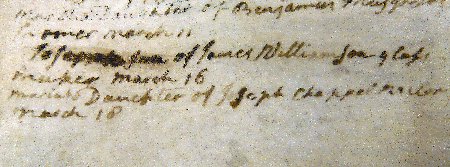 Daughter of Benjamin
march 11
Joseph son of James Williamson glass
maker march 16
maria Daughter of Joseph Chappel
march 18